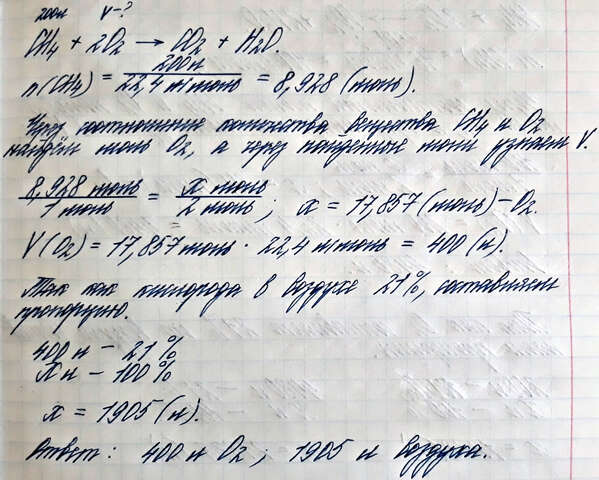 200л V-?
CH4 + 2O2 → CO2 + H2O.
n(CH4) = 200л / 22,4 л/моль = 8,928 (моль).
Через соотношение количества вещества CH4 и O2
найдём моль O2, а через найденные моли узнаем V.
8,928 моль / 1 моль = x моль / 2 моль ; x = 17,857 (моль) - O2.
V(O2) = 17,857 моль · 22,4 л/моль = 400 (л).
Так как кислорода в воздухе 21%, составляем
пропорцию.
400 л - 21 %
X л - 100 %
x = 1905 (л).
Ответ: 400 л O2 ; 1905 л воздуха.